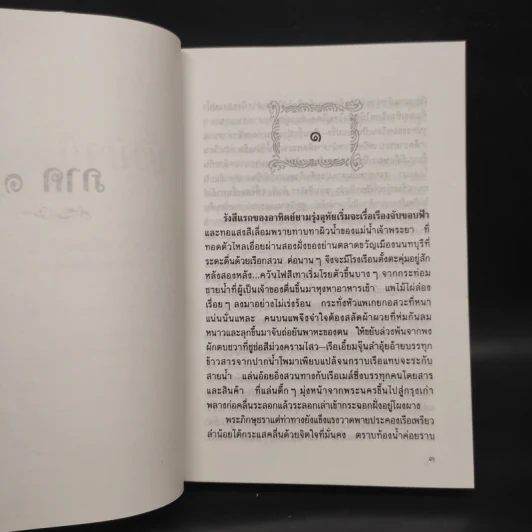 ภาค ๑
๑
รังสีแรกของอาทิตย์ยามรุ่งอุทัยเริ่มจะเรื่อเรืองจับขอบฟ้า
และทอแสงสีเลื่อมพรายทาบทาผิวน้ำของแม่น้ำเจ้าพระยา ที่
ทอดตัวไหลเอื่อยผ่านสองฝั่งของย่านตลาดขวัญเมืองนนทบุรีที่
ระดะดื่นด้วยเรือกสวน ต่อนานๆ จึงจะมีโรงเรือนตั้งตะคุ่มอยู่สัก
หลังสองหลัง...ควันไฟสีเทาเริ่มโรยตัวขึ้นบางๆ จากกระท่อม
ชายน้ำที่ผู้เป็นเจ้าของตื่นขึ้นมาหุงหาอาหารเช้า แพไม้ไผ่ล่อง
เรื่อยๆ ลงมาอย่างไม่เร่งร้อน กระทั่งหัวแพเกยกอสวะที่หนา
แน่นนั่นแหละ คนบนแพจึงจำใจต้องสลัดผ้าผวยที่ห่มกันลม
หนาวและลุกขึ้นมาจับถ่อยันพาหะของตน ให้ขยับล่วงพ้นจากพง
ผักตบชวาที่ชูช่อสีม่วงครามไสว—เรือเอี้ยมจุ๊นลำอุ้ยอ้ายบรรทุก
ข้าวสารจากปากน้ำโพมาเพียบแปล้จนกราบเรือแทบจะระกับ
สายน้ำ แล่นอ้อยอิ่งสวนทางกับเรือเมล์ซึ่งบรรทุกคนโดยสาร
และสินค้า ที่แล่นตึ้กๆ มุ่งหน้าจากพระนครขึ้นไปสู่กรุงเก่า
พลางก่อคลื่นระลอกแล้วระลอกเล่าเข้ากระฉอกฝั่งอยู่โผงผาง
พระภิกษุชราแต่ท่าทางยังแข็งแรงวาดพายประคองเรือเพรียว
ลำน้อยโต้กระแสคลื่นด้วยจิตใจที่มั่นคง ตราบท้องน้ำค่อยราบ
๓